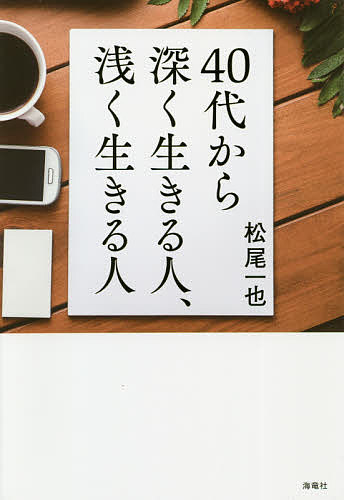 40代から
深く生きる人、
浅く生きる人
松尾一也
海竜社